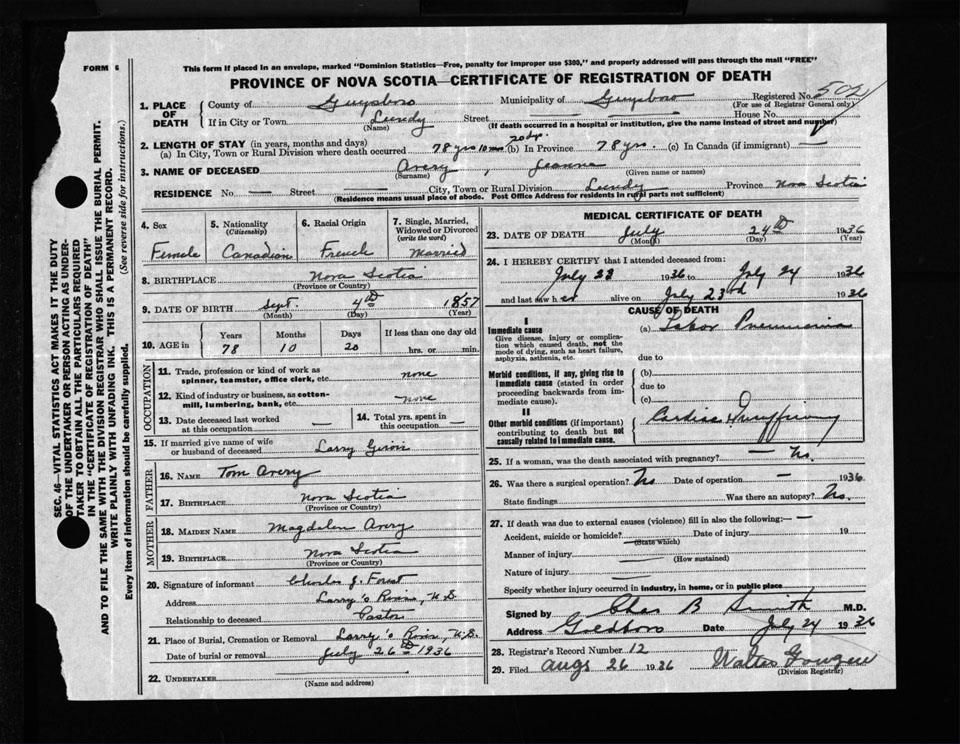 FORM 6
This form if placed in an envelope, marked "Dominion Statistics—Free, penalty for improper use $300," and properly addressed will pass through the mail "FREE"
PROVINCE OF NOVA SCOTIA—CERTIFICATE OF REGISTRATION OF DEATH
Registered No. 502
(For use of Registrar General only)
1. PLACE OF DEATH
County of Guysboro Municipality of Guysboro
If in City or Town Lundy Street — House No. —
(Name) (If death occurred in a hospital or institution, give the name instead of street and number)
2. LENGTH OF STAY (in years, months and days)
(a) In City, Town or Rural Division where death occurred 78 yrs 10 mos 20 dys. (b) In Province 78 yrs. (c) In Canada (if immigrant) —
3. NAME OF DECEASED Avery, Jeanne
(Surname) (Given name or names)
RESIDENCE No. — Street — City, Town or Rural Division Lundy Province Nova Scotia
(Residence means usual place of abode. Post Office Address for residents in rural parts not sufficient)
4. Sex Female
5. Nationality (Citizenship) Canadian
6. Racial Origin French
7. Single, Married, Widowed or Divorced (write the word) Married
8. BIRTHPLACE Nova Scotia
(Province or Country)
9. DATE OF BIRTH Sept. 4th 1857
(Month) (Day) (Year)
10. AGE in Years 78 Months 10 Days 20 If less than one day old hrs. or min.
OCCUPATION
11. Trade, profession or kind of work as spinner, teamster, office clerk, etc. none
12. Kind of industry or business, as cotton-mill, lumbering, bank, etc. none
13. Date deceased last worked at this occupation —
14. Total yrs. spent in this occupation —
15. If married give name of wife or husband of deceased Larry
FATHER
16. NAME Tom Avery
17. BIRTHPLACE Nova Scotia
(Province or Country)
MOTHER
18. MAIDEN NAME Magdalen Avery
19. BIRTHPLACE Nova Scotia
(Province or Country)
20. Signature of informant Charles J. Forest
Address Larry's River, N.S.
Relationship to deceased Pastor
21. Place of Burial, Cremation or Removal Larry's River, N.S.
Date of burial or removal July 26th 1936
22. UNDERTAKER
(Name and address)
MEDICAL CERTIFICATE OF DEATH
23. DATE OF DEATH July 24th 1936
(Month) (Day) (Year)
24. I HEREBY CERTIFY that I attended deceased from:
July 23 1936 to July 24 1936
and last saw her alive on July 23rd 1936
CAUSE OF DEATH
I
Immediate cause
Give disease, injury or complication which caused death, not the mode of dying, such as heart failure, asphyxia, asthenia, etc.
(a) Lobar Pneumonia
due to
Morbid conditions, if any, giving rise to immediate cause (stated in order proceeding backwards from immediate cause).
(b)
due to
(c)
II
Other morbid conditions (if important) contributing to death but not causally related to immediate cause.
Cardiac
25. If a woman, was the death associated with pregnancy? — No.
26. Was there a surgical operation? No Date of operation — 1936.
State findings Was there an autopsy? No.
27. If death was due to external causes (violence) fill in also the following:— —
Accident, suicide or homicide? Date of injury 19
(State which)
Manner of injury
(How sustained)
Nature of injury —
Specify whether injury occurred in industry, in home, or in public place
Signed by Chas B Smith M.D.
Address Goldboro Date July 24 1936
28. Registrar's Record Number 12
29. Filed Augs 26 1936 Walter
(Division Registrar)
SEC. 46—VITAL STATISTICS ACT MAKES IT THE DUTY
OF THE UNDERTAKER OR PERSON ACTING AS UNDER-
TAKER TO OBTAIN ALL THE PARTICULARS REQUIRED
IN THE "CERTIFICATE OF REGISTRATION OF DEATH"
AND TO FILE THE SAME WITH THE DIVISION REGISTRAR WHO SHALL ISSUE THE BURIAL PERMIT.
WRITE PLAINLY WITH UNFADING INK. THIS IS A PERMANENT RECORD.
Every item of information should be carefully supplied. (See reverse side for instructions.)